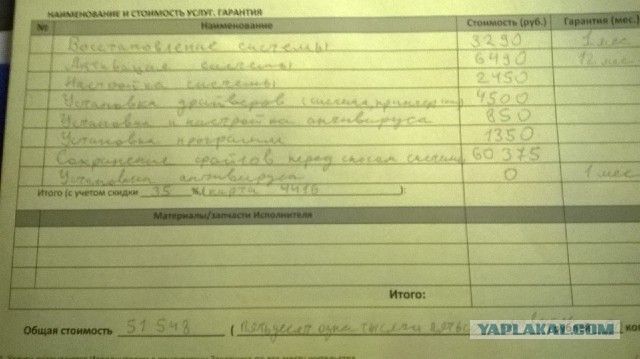 НАИМЕНОВАНИЕ И СТОИМОСТЬ УСЛУГ. ГАРАНТИЯ
№ Наименование Стоимость (руб.) Гарантия (мес.)
Восстановление системы 3290 1 мес
Активация системы 6490 12 мес
Настройка системы 2450
Установка драйверов 4500
Установка и настройка антивируса 850
Установка программ 1350
Сохранение файлов перед сносом системы 60 375
Установка антивируса 0 1 мес
Итого (с учетом скидки 35 % (карта 4416 ):
Материалы/запчасти Исполнителя
Итого:
Общая стоимость 51 548 ( Пятьдесят одна тысяча коп
YAPLAKAL.COM